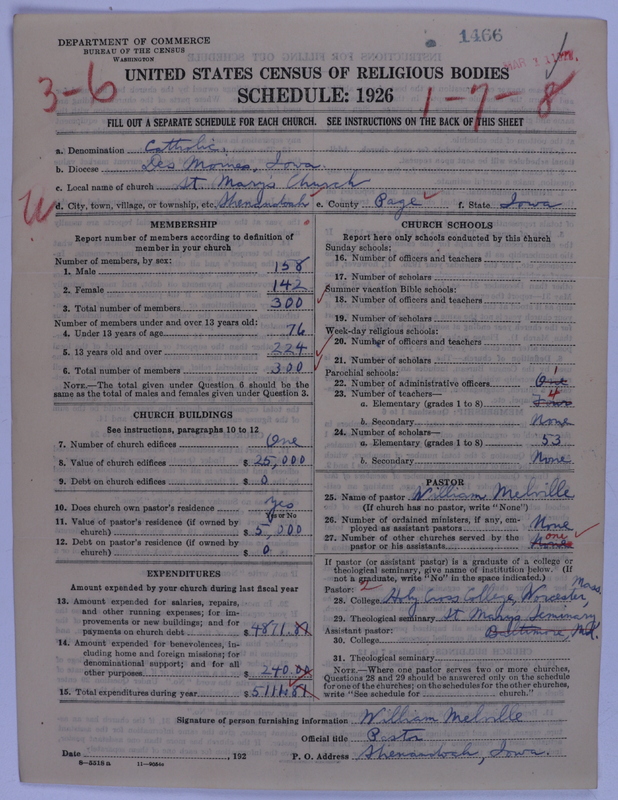 DEPARTMENT OF COMMERCE
BUREAU OF THE CENSUS
WASHINGTON
1466
3-6
UNITED STATES CENSUS OF RELIGIOUS BODIES
SCHEDULE: 1926
1-7-8
FILL OUT A SEPARATE SCHEDULE FOR EACH CHURCH. SEE INSTRUCTIONS ON THE BACK OF THIS SHEET
a. Denomination Catholic.
b. Diocese Des Moines, Iowa.
c. Local name of church St. Mary's Church
d. City, town, village, or township, etc. Shenandoah e. County Page f. State Iowa
MEMBERSHIP
Report number of members according to definition of
member in your church
Number of members, by sex:
1. Male 158
2. Female 142
3. Total number of members 300
Number of members under and over 13 years old:
4. Under 13 years of age 76
5. 13 years old and over 224
6. Total number of members 300
NOTE.—The total given under Question 6 should be the
same as the total of males and females given under Question 3.
CHURCH BUILDINGS
See instructions, paragraphs 10 to 12
7. Number of church edifices One
8. Value of church edifices $ 25,000
9. Debt on church edifices $ 0
10. Does church own pastor's residence Yes
Yes or No
11. Value of pastor's residence (if owned by
church) $ 5,000
12. Debt on pastor's residence (if owned by
church) $ 0
EXPENDITURES
Amount expended by your church during last fiscal year
13. Amount expended for salaries, repairs,
and other running expenses; for im-
provements or new buildings; and for
payments on church debt $ 4871.81
14. Amount expended for benevolences, in-
cluding home and foreign missions; for
denominational support; and for all
other purposes $ 240.00
15. Total expenditures during year $ 5111.81
CHURCH SCHOOLS
Report here only schools conducted by this church
Sunday schools:
16. Number of officers and teachers
17. Number of scholars
Summer vacation Bible schools:
18. Number of officers and teachers
19. Number of scholars
Week-day religious schools:
20. Number of officers and teachers
21. Number of scholars
Parochial schools:
22. Number of administrative officers One 1
23. Number of teachers—
a. Elementary (grades 1 to 8) Four 4
b. Secondary None
24. Number of scholars—
a. Elementary (grades 1 to 8) 53
b. Secondary None
PASTOR
25. Name of pastor William Melville
(If church has no pastor, write "None")
26. Number of ordained ministers, if any, em-
ployed as assistant pastors None
27. Number of other churches served by the
pastor or his assistants None one
If pastor (or assistant pastor) is a graduate of a college or
theological seminary, give name of institution below. (If
not a graduate, write "No" in the space indicated.)
Pastor: 2
28. College Holy Cross College, Worcester, Mass.
29. Theological seminary St. Mary's Seminary
Assistant pastor: Baltimore, Md.
30. College
31. Theological seminary
NOTE.—Where one pastor serves two or more churches,
Questions 28 and 29 should be answered only on the schedule
for one of the churches; on the schedules for the other churches,
write "See schedule for ........ church."
Signature of person furnishing information William Melville
Official title Pastor
Date ........, 192 P. O. Address Shenandoah, Iowa.
8—5518a 11—9051a